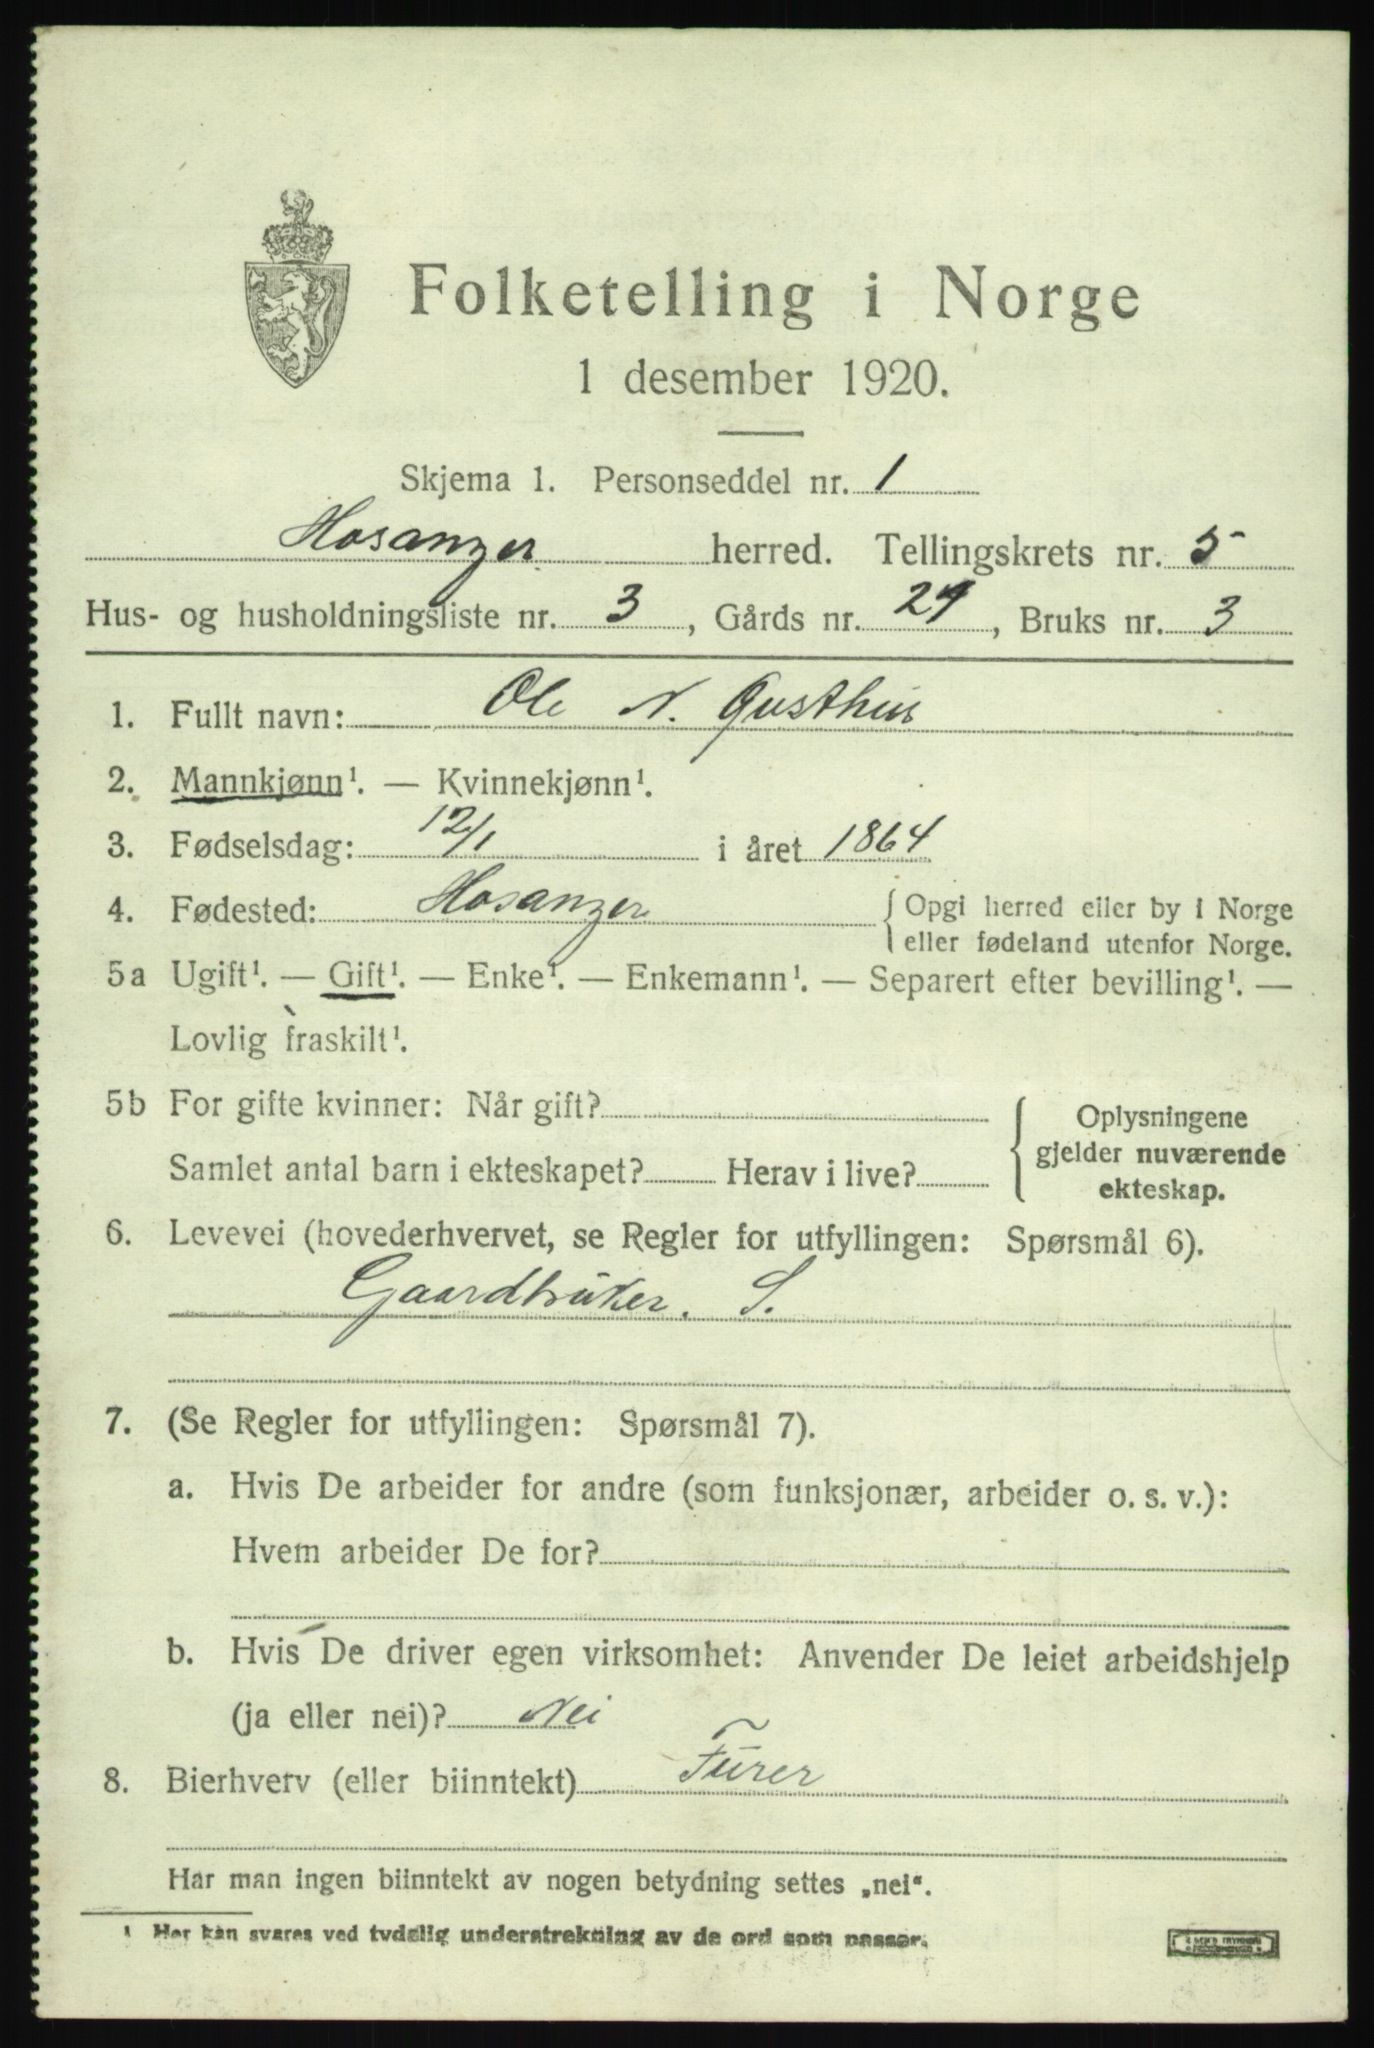 Folketelling i Norge
1 desember 1920.
Skjema 1. Personseddel nr. 1
Hosanger herred. Tellingskrets nr. 5
Hus- og husholdningsliste nr. 3, Gårds nr. 24, Bruks nr. 3
1. Fullt navn: Ole N. Gusthus
2. Mannkjønn¹. — Kvinnekjønn¹.
3. Fødselsdag: 12/1 i året 1864
4. Fødested: Hosanger { Opgi herred eller by i Norge
eller fødeland utenfor Norge.
5a Ugift¹. — Gift¹. — Enke¹. — Enkemann¹. — Separert efter bevilling¹. —
Lovlig fraskilt¹.
5b For gifte kvinner: Når gift?
Samlet antal barn i ekteskapet? Herav i live?
{ Oplysningene
gjelder nuværende
ekteskap.
6. Levevei (hovederhvervet, se Regler for utfyllingen: Spørsmål 6).
Gaardbruker. S.
7. (Se Regler for utfyllingen: Spørsmål 7).
a. Hvis De arbeider for andre (som funksjonær, arbeider o. s. v.):
Hvem arbeider De for?
b. Hvis De driver egen virksomhet: Anvender De leiet arbeidshjelp
(ja eller nei)? Nei
8. Bierhverv (eller biinntekt) Furer
Har man ingen biinntekt av nogen betydning settes „nei“.
¹ Her kan svares ved tydelig understrekning av de ord som passer.